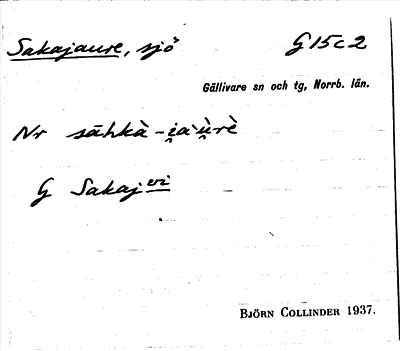 Sakajaure, sjö G 15 c 2
Gällivare sn och tg, Norrb. län.
Nr sāhkà-i̯a`ù̯rè
G Sakajeri
BJÖRN COLLINDER 1937.